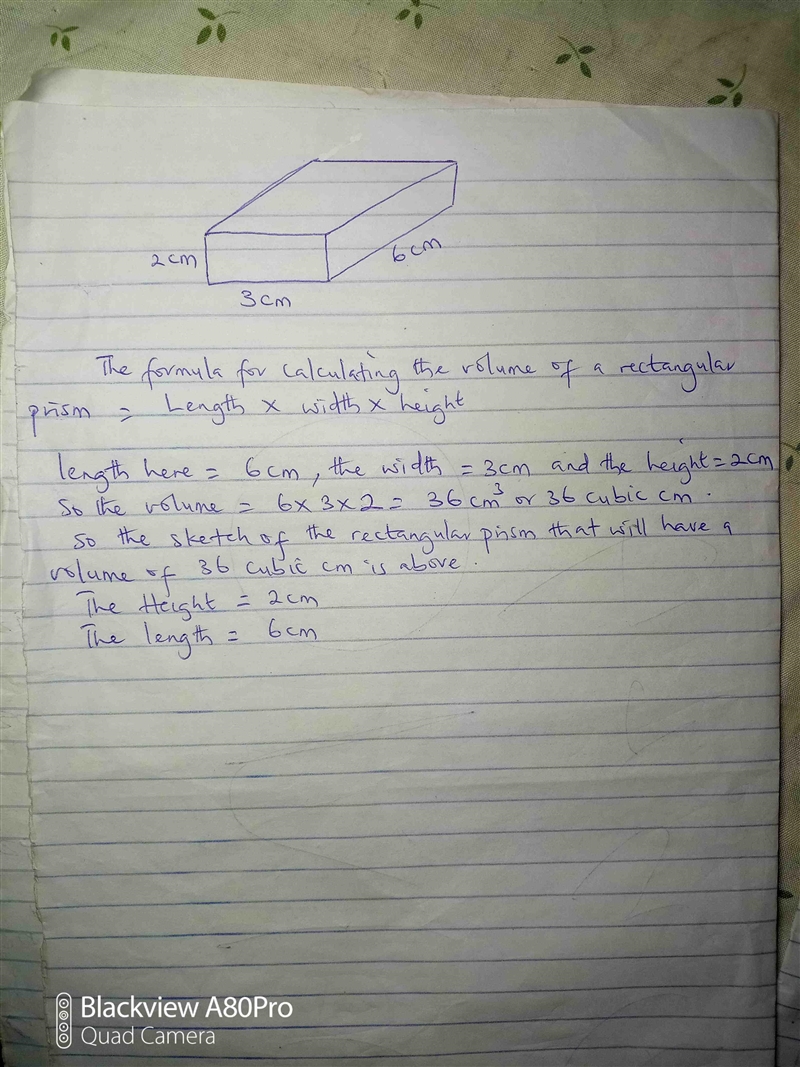 2cm
6cm
3cm
The formula for calculating the volume of a rectangular
prism = Length x width x height
length here = 6cm, the width = 3cm and the height = 2cm
So the volume = 6 x 3 x 2 = 36cm³ or 36 cubic cm.
So the sketch of the rectangular prism that will have a
volume of 36 cubic cm is above.
The Height = 2cm
The length = 6cm
Blackview A80Pro
Quad Camera